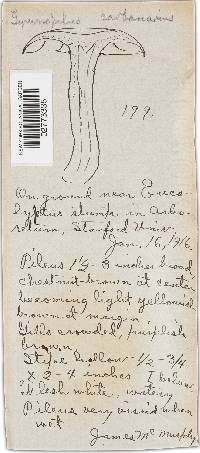 Gymnopilus
199.
On ground near Euca-
lyptus stump, in Arbo-
retum, Stanford Univ.
Jan, 16, 1916.
Pileus 1½-3 inches broad
chestnut-brown at center
becoming light yellowish
brown at margin
Gills crowded, purplish
brown,
Stipe hollow ½-3/4
x 2-4 inches
Flesh white, watery
Pileus very viscid when
wet
James McMurphy
02773335